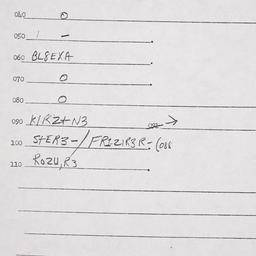 040 0
050 1 -
060 BL8EXA
070 0
080 0
090 KIRZTN3
100 STER3-/FRIZIR3R-
110 ROZU,R3